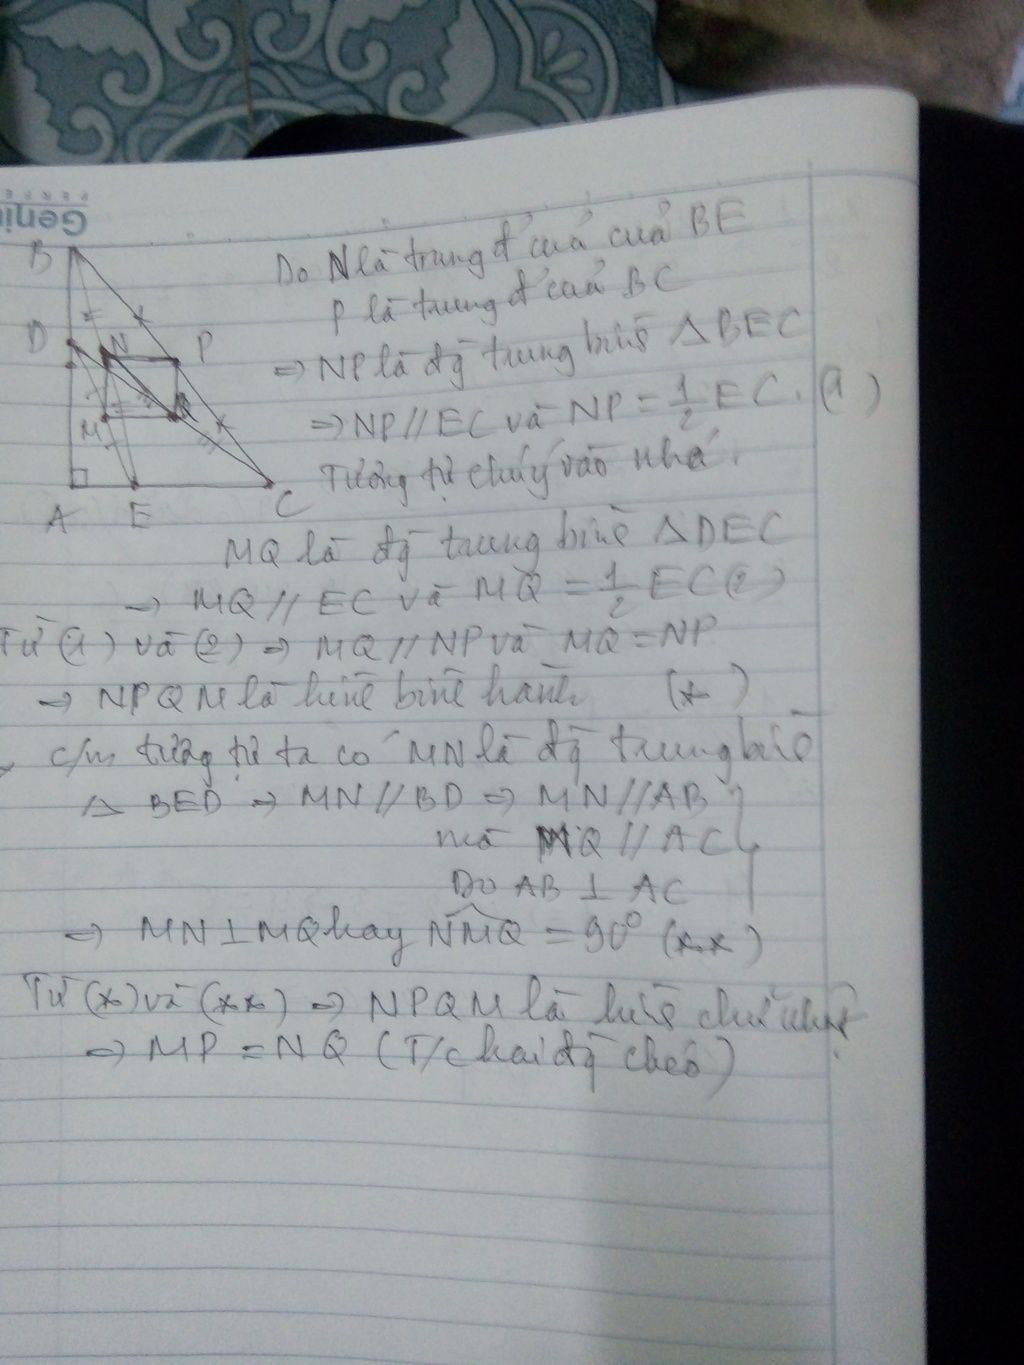 Geniu
PERFE
B
D
N
P
M
Q
A E C
Do N là trung đ' của của BE
P là trung đ' của BC
=> NP là đg̃ trung bìnĥ Δ BEC
=> NP // EC và NP = 1/2 EC. (1)
Tương tự chú ý vào nhá.
MQ là đg̃ trung bìnĥ Δ DEC
-> MQ // EC và MQ = 1/2 EC (2)
Từ (1) và (2) => MQ // NP và MQ = NP
=> NPQM là hình bình hành (*)
c/m tương tự ta có MN là đg̃ trung bình
Δ BED => MN // BD => MN // AB
mà MQ // AC
Do AB ⊥ AC
=> MN ⊥ MQ hay NMQ = 90° (**)
Từ (*) và (**) => NPQM là hình chữ nhật
=> MP = NQ (T/c hai đg̃ chéo)